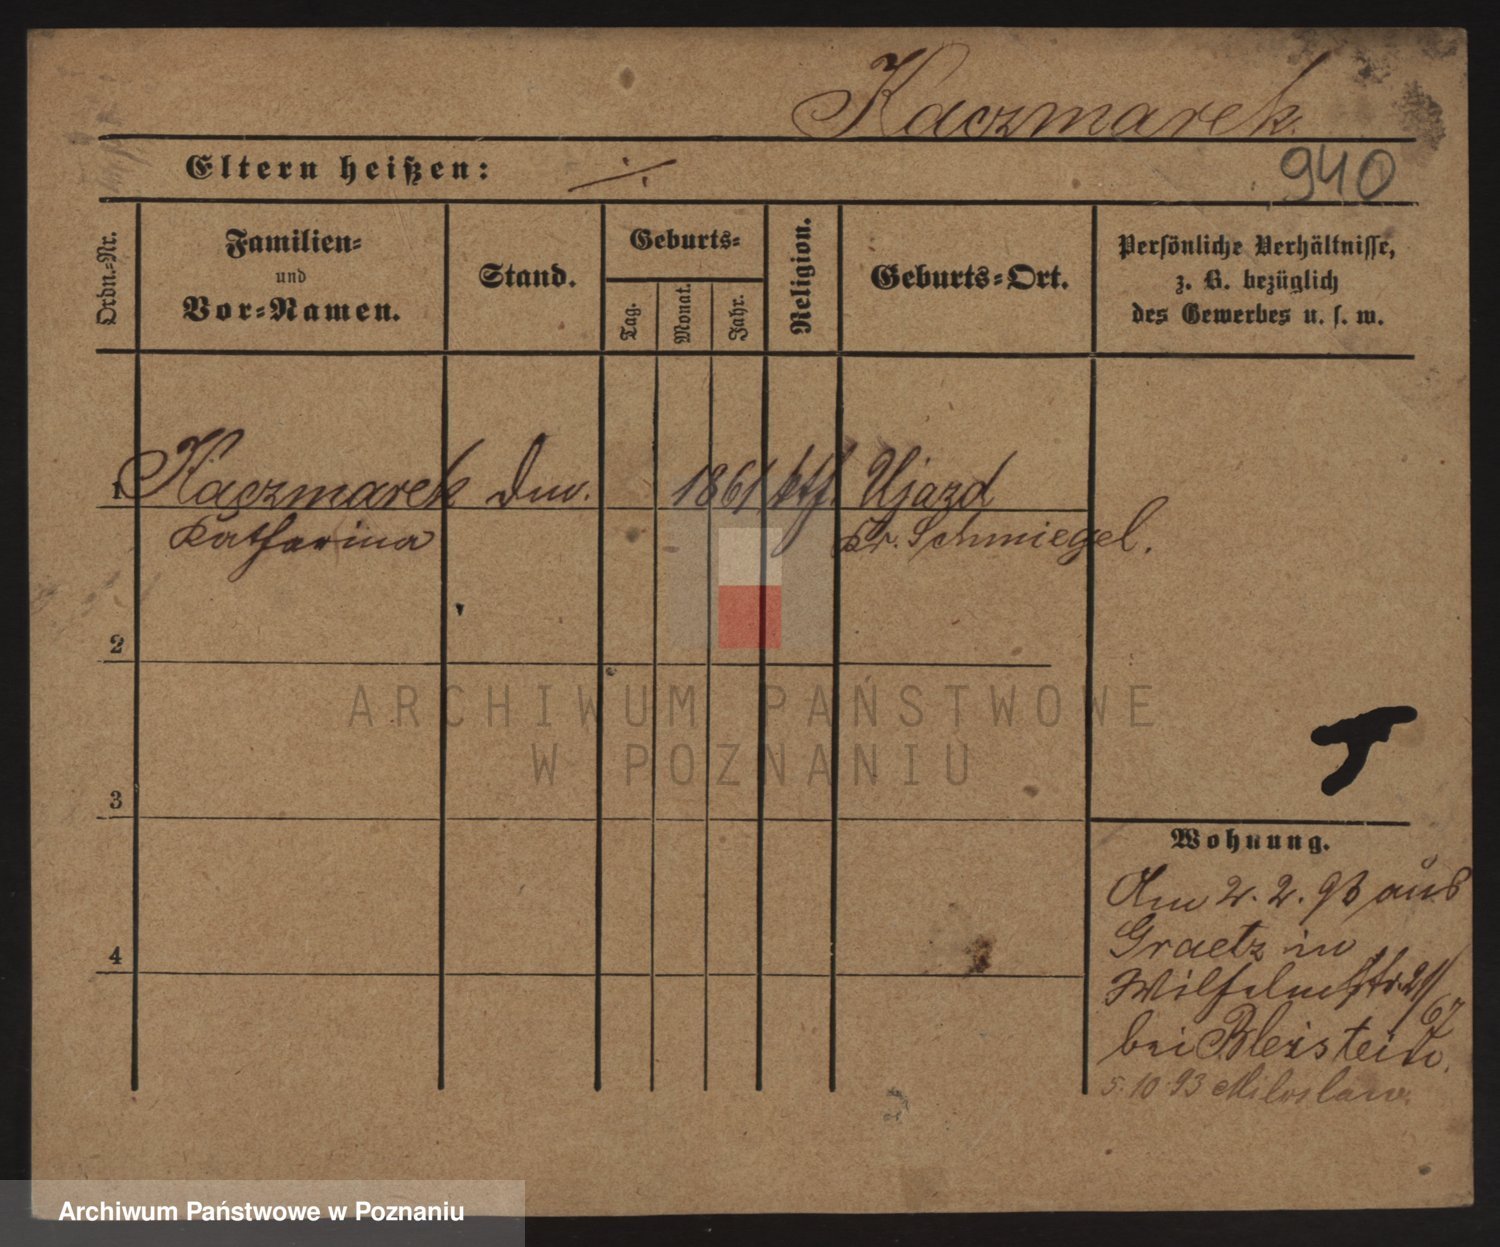 Kaczmarek.
Eltern heißen: ./.
940
Ordn.-Nr.
Familien-
und
Vor-Namen.
Stand.
Geburts-
Tag.
Monat.
Jahr.
Religion.
Geburts-Ort.
Persönliche Verhältnisse,
z. B. bezüglich
des Gewerbes u. s. w.
1 Kaczmarek 1861 ktf. Ujazd
Katharina Kr. Schmiegel.
2
3
4
Wohnung.
Am 2. 2. 93 aus
Graetz in
Wilhelmstr. 21/
67
bei Bleistein.
5.10.93 Miloslaw.
ARCHIWUM PAŃSTWOWE
W POZNANIU
Archiwum Państwowe w Poznaniu